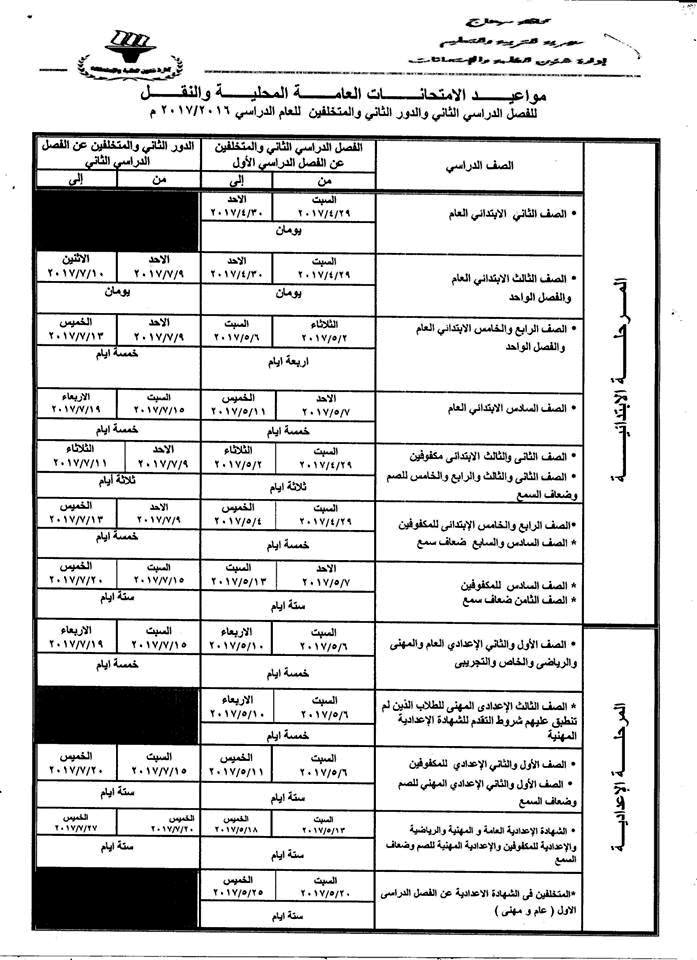 محافظة سوهاج
مديرية التربية والتعليم
إدارة شئون الطلبة والإمتحانات
إدارة شئون الطلبة والإمتحانات
مواعيد الامتحانات العامة المحلية والنقل
للفصل الدراسي الثاني والدور الثاني والمتخلفين للعام الدراسي ٢٠١٧/٢٠١٦ م
الصف الدراسي
الفصل الدراسي الثاني والمتخلفين عن الفصل الدراسي الأول
الدور الثاني والمتخلفين عن الفصل الدراسي الثاني
من إلى من إلى
المرحلة الابتدائية
• الصف الثاني الابتدائي العام
السبت الاحد
٢٠١٧/٤/٢٩ ٢٠١٧/٤/٣٠
يومان
• الصف الثالث الابتدائي العام
والفصل الواحد
السبت الاحد الاحد الاثنين
٢٠١٧/٤/٢٩ ٢٠١٧/٤/٣٠ ٢٠١٧/٧/٩ ٢٠١٧/٧/١٠
يومان يومان
• الصف الرابع والخامس الابتدائي العام
والفصل الواحد
الثلاثاء السبت الاحد الخميس
٢٠١٧/٥/٢ ٢٠١٧/٥/٦ ٢٠١٧/٧/٩ ٢٠١٧/٧/١٣
اربعة ايام خمسة ايام
• الصف السادس الابتدائي العام
الاحد الخميس السبت الاربعاء
٢٠١٧/٥/٧ ٢٠١٧/٥/١١ ٢٠١٧/٧/١٥ ٢٠١٧/٧/١٩
خمسة ايام خمسة ايام
• الصف الثانى والثالث الابتدائى مكفوفين
• الصف الثانى والثالث والرابع والخامس للصم
وضعاف السمع
السبت الثلاثاء الاحد الثلاثاء
٢٠١٧/٤/٢٩ ٢٠١٧/٥/٢ ٢٠١٧/٧/٩ ٢٠١٧/٧/١١
ثلاثة ايام ثلاثة أيام
*الصف الرابع والخامس الإبتدائى للمكفوفين
* الصف السادس والسابع ضعاف سمع
السبت الخميس الاحد الخميس
٢٠١٧/٤/٢٩ ٢٠١٧/٥/٤ ٢٠١٧/٧/٩ ٢٠١٧/٧/١٣
خمسة ايام خمسة ايام
* الصف السادس للمكفوفين
* الصف الثامن ضعاف سمع
الاحد السبت السبت الخميس
٢٠١٧/٥/٧ ٢٠١٧/٥/١٣ ٢٠١٧/٧/١٥ ٢٠١٧/٧/٢٠
ستة ايام ستة ايام
المرحلة الإعدادية
• الصف الأول والثاني الإعدادي العام والمهنى
والرياضى والخاص والتجريبى
السبت الاربعاء السبت الاربعاء
٢٠١٧/٥/٦ ٢٠١٧/٥/١٠ ٢٠١٧/٧/١٥ ٢٠١٧/٧/١٩
خمسة ايام خمسة ايام
* الصف الثالث الإعدادى المهنى للطلاب الذين لم
تنطبق عليهم شروط التقدم للشهادة الإعدادية
المهنية
السبت الاربعاء
٢٠١٧/٥/٦ ٢٠١٧/٥/١٠
خمسة ايام
• الصف الأول والثاني الإعدادي للمكفوفين
• الصف الأول والثاني الإعدادي المهني للصم
وضعاف السمع
السبت الخميس السبت الخميس
٢٠١٧/٥/٦ ٢٠١٧/٥/١١ ٢٠١٧/٧/١٥ ٢٠١٧/٧/٢٠
ستة ايام ستة ايام
• الشهادة الإعدادية العامة و المهنية والرياضية
والإعدادية للمكفوفين والإعدادية المهنية للصم وضعاف
السمع
السبت الخميس الخميس الخميس
٢٠١٧/٥/١٣ ٢٠١٧/٥/١٨ ٢٠١٧/٧/٢٠ ٢٠١٧/٧/٢٧
ستة ايام ستة ايام
*المتخلفين فى الشهادة الاعدادية عن الفصل الدراسى
الاول ( عام و مهنى )
السبت الخميس
٢٠١٧/٥/٢٠ ٢٠١٧/٥/٢٥
ستة ايام